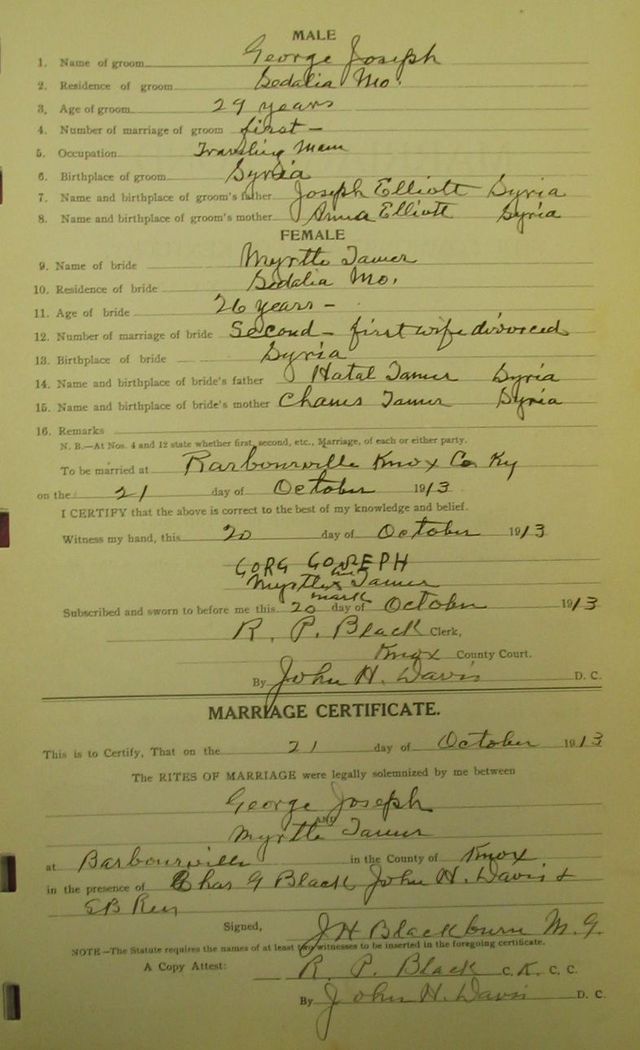 MALE
1. Name of groom George Joseph
2. Residence of groom Sedalia Mo.
3. Age of groom 29 years
4. Number of marriage of groom first -
5. Occupation Traveling Man
6. Birthplace of groom Syria
7. Name and birthplace of groom's father Joseph Elliott Syria
8. Name and birthplace of groom's mother Anna Elliott Syria
FEMALE
9. Name of bride Myrtle Tamer
10. Residence of bride Sedalia Mo.
11. Age of bride 26 years -
12. Number of marriage of bride Second - first wife divorced
13. Birthplace of bride Syria
14. Name and birthplace of bride's father Hatal Tamer Syria
15. Name and birthplace of bride's mother Tamer Syria
16. Remarks
N. B.—At Nos. 4 and 12 state whether first, second, etc., Marriage, of each or either party.
To be married at Barbourville Knox Co Ky
on the 21 day of October 1913
I CERTIFY that the above is correct to the best of my knowledge and belief.
Witness my hand, this 20 day of October 1913
GORG GOSEPH
her
Myrtle x Tamer
mark
Subscribed and sworn to before me this 20 day of October 1913
R. P. Black Clerk,
Knox County Court.
By John H. Davis D. C.
MARRIAGE CERTIFICATE.
This is to Certify, That on the 21 day of October 1913
The RITES OF MARRIAGE were legally solemnized by me between
George Joseph
AND
Myrtle Tamer
at Barbourville in the County of Knox
in the presence of Chas G Black John H. Davis &
Signed, J H Blackburn M. G.
NOTE—The Statute requires the names of at least two witnesses to be inserted in the foregoing certificate.
A Copy Attest: R. P. Black C. K. C. C.
By John H. Davis D. C.